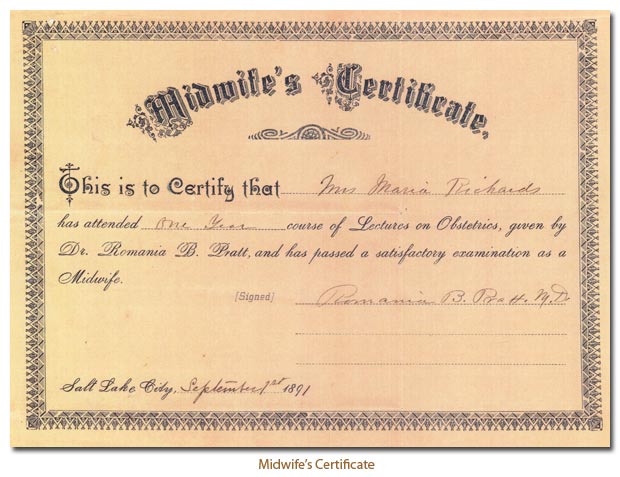 Midwife's Certificate.
This is to Certify that Mrs Maria Richards
has attended One Year course of Lectures on Obstetrics, given by
Dr. Romania B. Pratt, and has passed a satisfactory examination as a
Midwife.
[Signed] Romania B. Pratt. M.D.
Salt Lake City, September 1st 1891
Midwife's Certificate